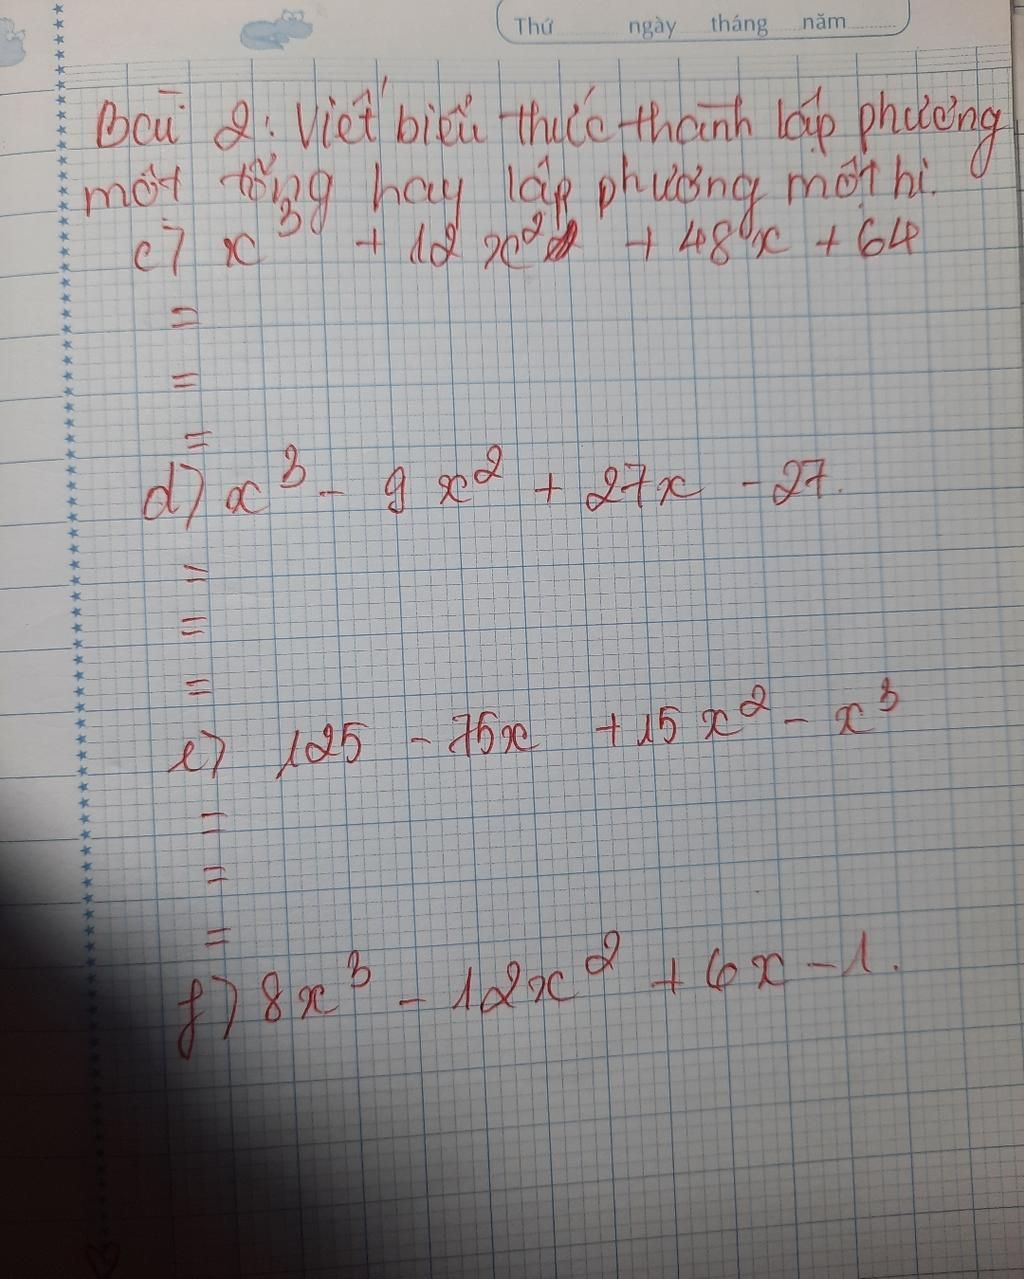 Thứ ngày tháng năm
Bài 2: Viết biểu thức thành lập phương
một tổng hay lập phương một hi.
c) x³ + 12x² + 48x + 64
=
=
=
d) x³ - 9x² + 27x - 27.
=
=
=
e) 125 - 75x + 15x² - x³
=
=
=
f) 8x³ - 12x² + 6x - 1.